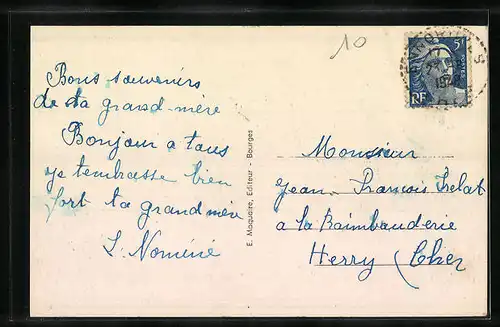 10
Bons souvenirs
de ta grand-mère
Bonjour a tous
je tembrasse bien
fort ta grand mère
L. Nominé
E. Maquaire, Editeur - Bourges
5F
POSTES
RF
Monsieur
Jean François Trelat
a la Raimbauderie
Herry (Cher